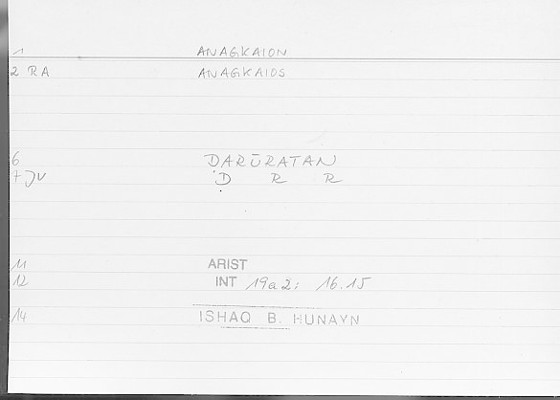 1 ANAGKAION
2 RA ANAGKAIOS
6 DARŪRATAN
7 JV Ḍ R R
11 ARIST
12 INT 19a2; 16.15
14 ISHAQ B. HUNAYN